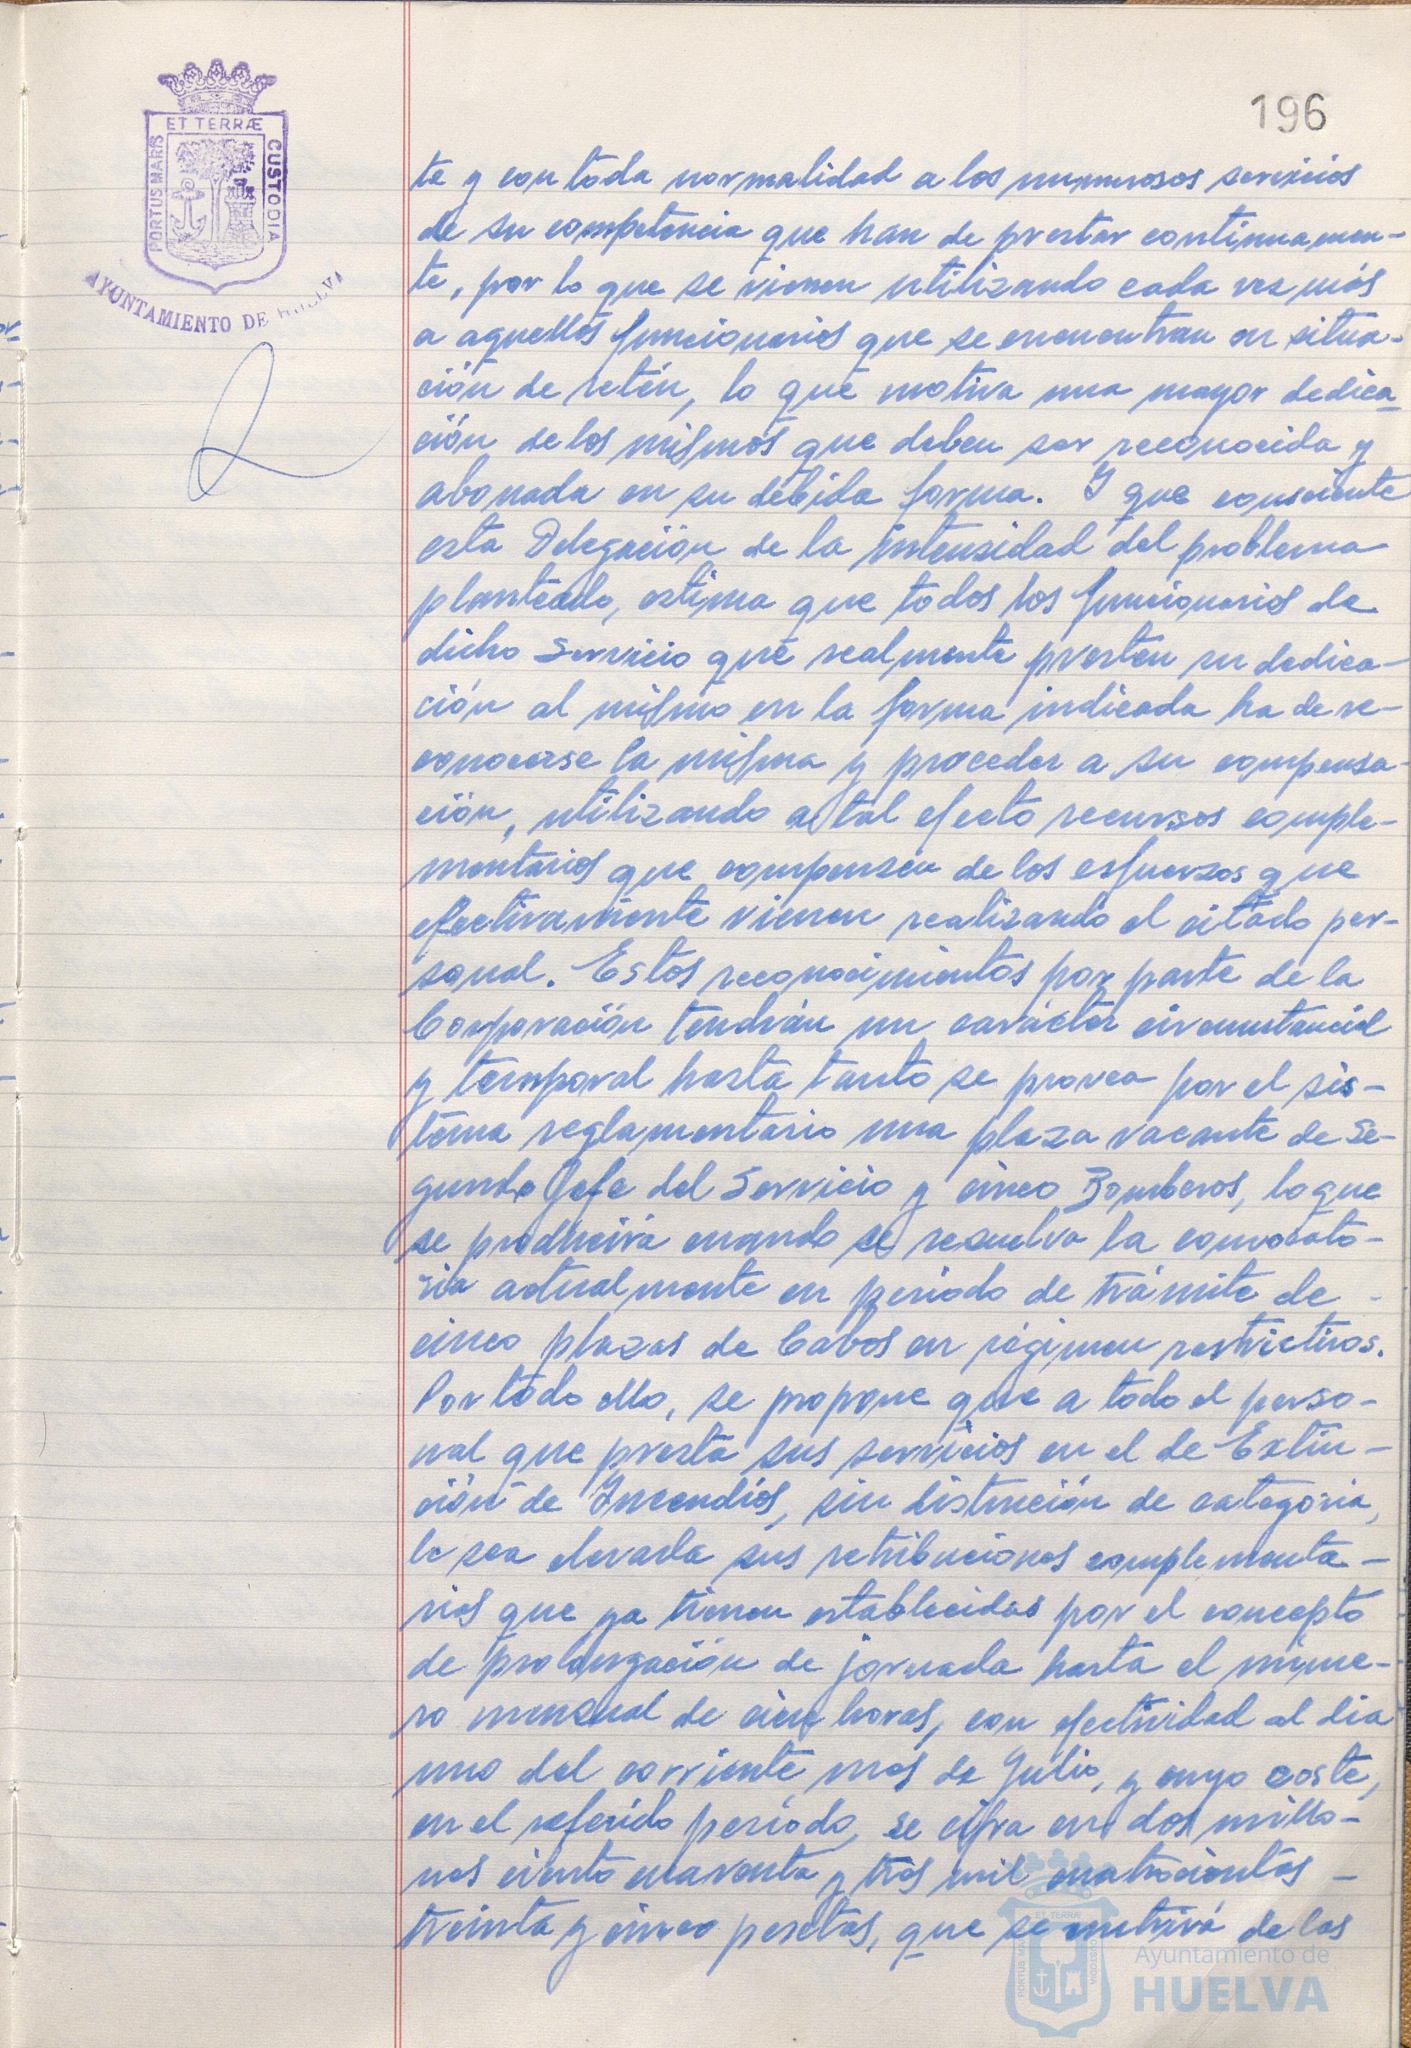 196
ET TERRÆ
PORTUS MARIS
CUSTODIA
AYUNTAMIENTO DE HUELVA
te y con toda normalidad a los numerosos servicios
de su competencia que han de prestar continuamen-
te, por lo que se vienen utilizando cada vez más
a aquellos funcionarios que se encuentran en situa-
ción de retén, lo que motiva una mayor dedica-
ción de los mismos que deben ser reconocida y
abonada en su debida forma. Y que consciente
esta Delegación de la intensidad del problema
planteado, estima que todos los funcionarios de
dicho Servicio que realmente presten su dedica-
ción al mismo en la forma indicada ha de re-
conocerse la misma y proceder a su compensa-
ción, utilizando a tal efecto recursos comple-
mentarios que compensen de los esfuerzos que
efectivamente vienen realizando el citado per-
sonal. Estos reconocimientos por parte de la
Corporación tendrán un carácter circunstancial
y temporal hasta tanto se provea por el sis-
tema reglamentario una plaza vacante de Se-
gundo Jefe del Servicio y cinco Bomberos, lo que
se producirá cuando se resuelva la convocato-
ria actualmente en periodo de trámite de -
cinco plazas de Cabos en régimen restrictivos.
Por todo ello, se propone que a todo el perso-
nal que presta sus servicios en el de Extin-
ción de Incendios, sin distinción de categoria,
le sea elevada sus retribuciones complementa-
rias que ya tienen establecidas por el concepto
de prolongación de jornada hasta el núme-
ro mensual de cien horas, con efectividad al dia
uno del corriente mes de Julio, y cuyo coste,
en el referido período, se cifra en dos millo-
nes ciento cuarenta y tres mil cuatrocientas -
treinta y cinco pesetas, que se nutrirá de las
ET TERRÆ
Ayuntamiento de
HUELVA